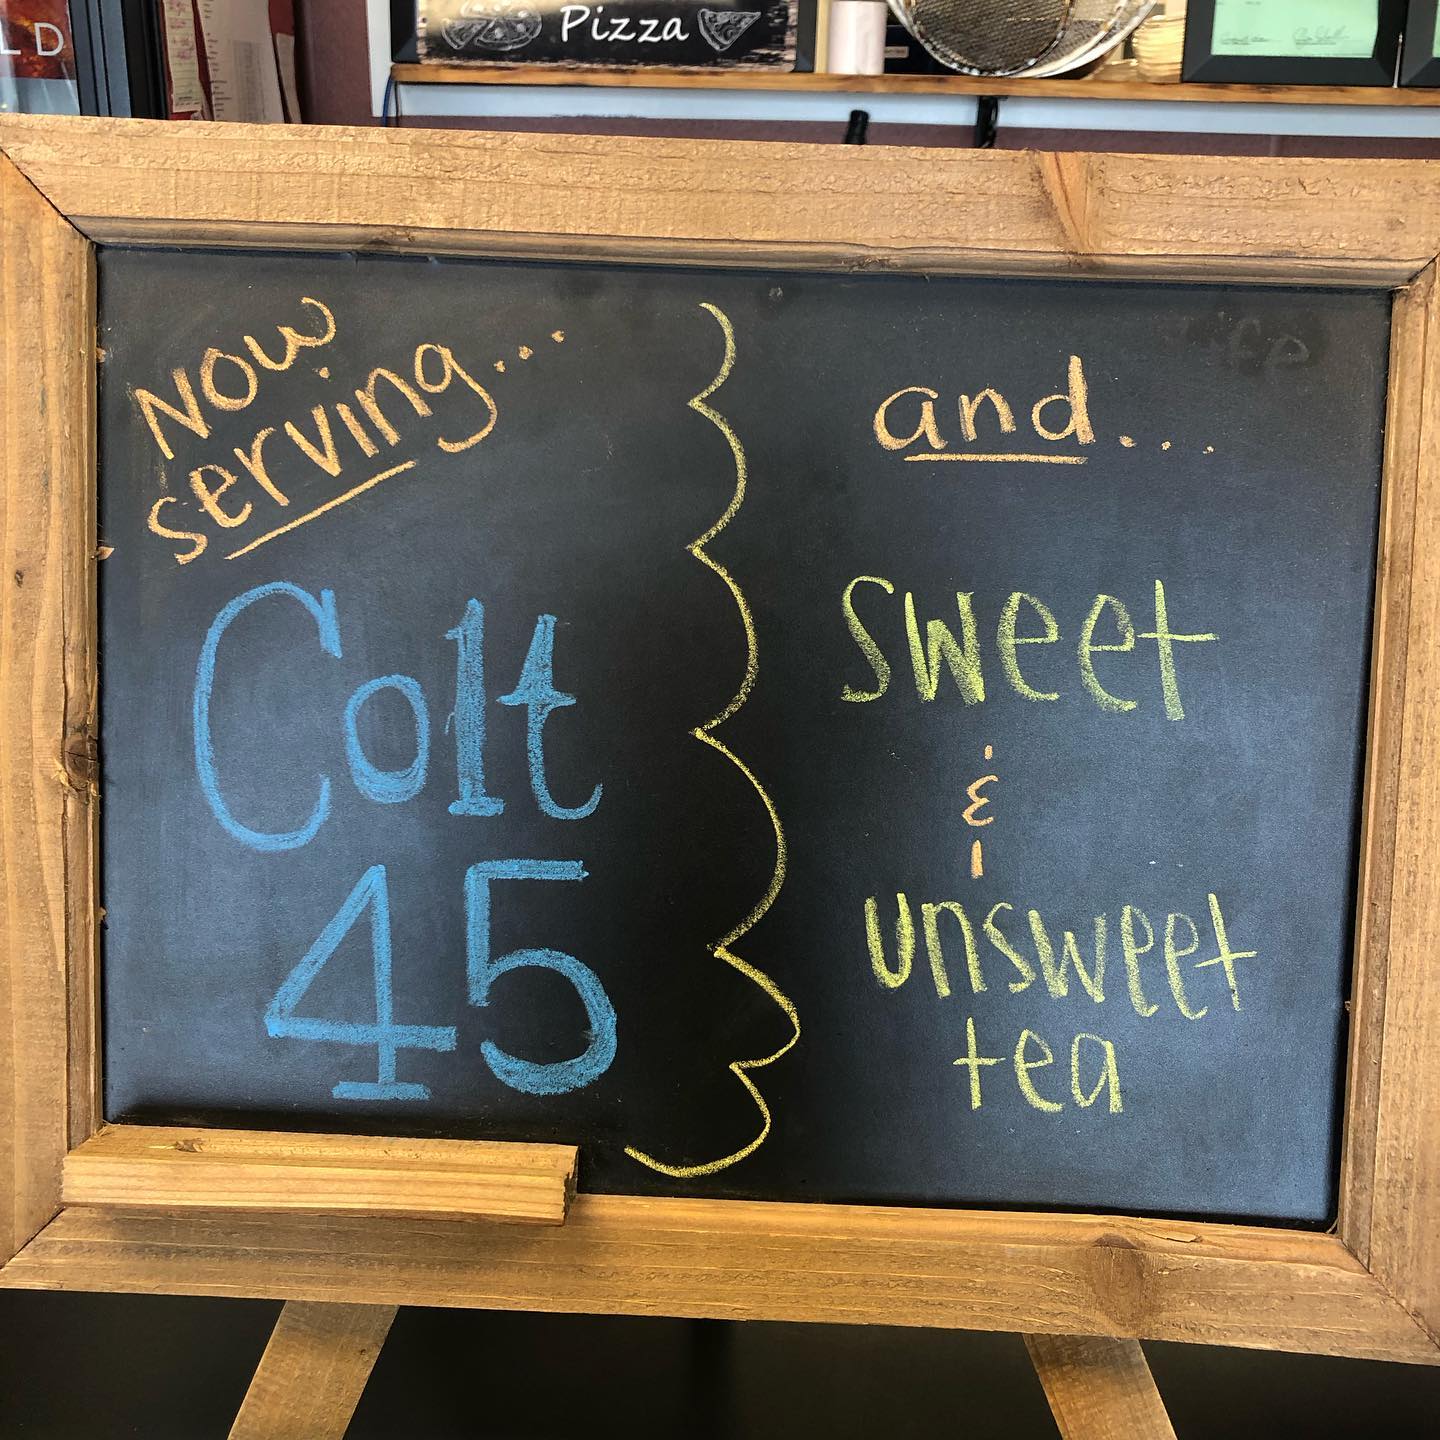 LD
Pizza
Now
serving...
Colt
45
and...
sweet
&
unsweet
tea